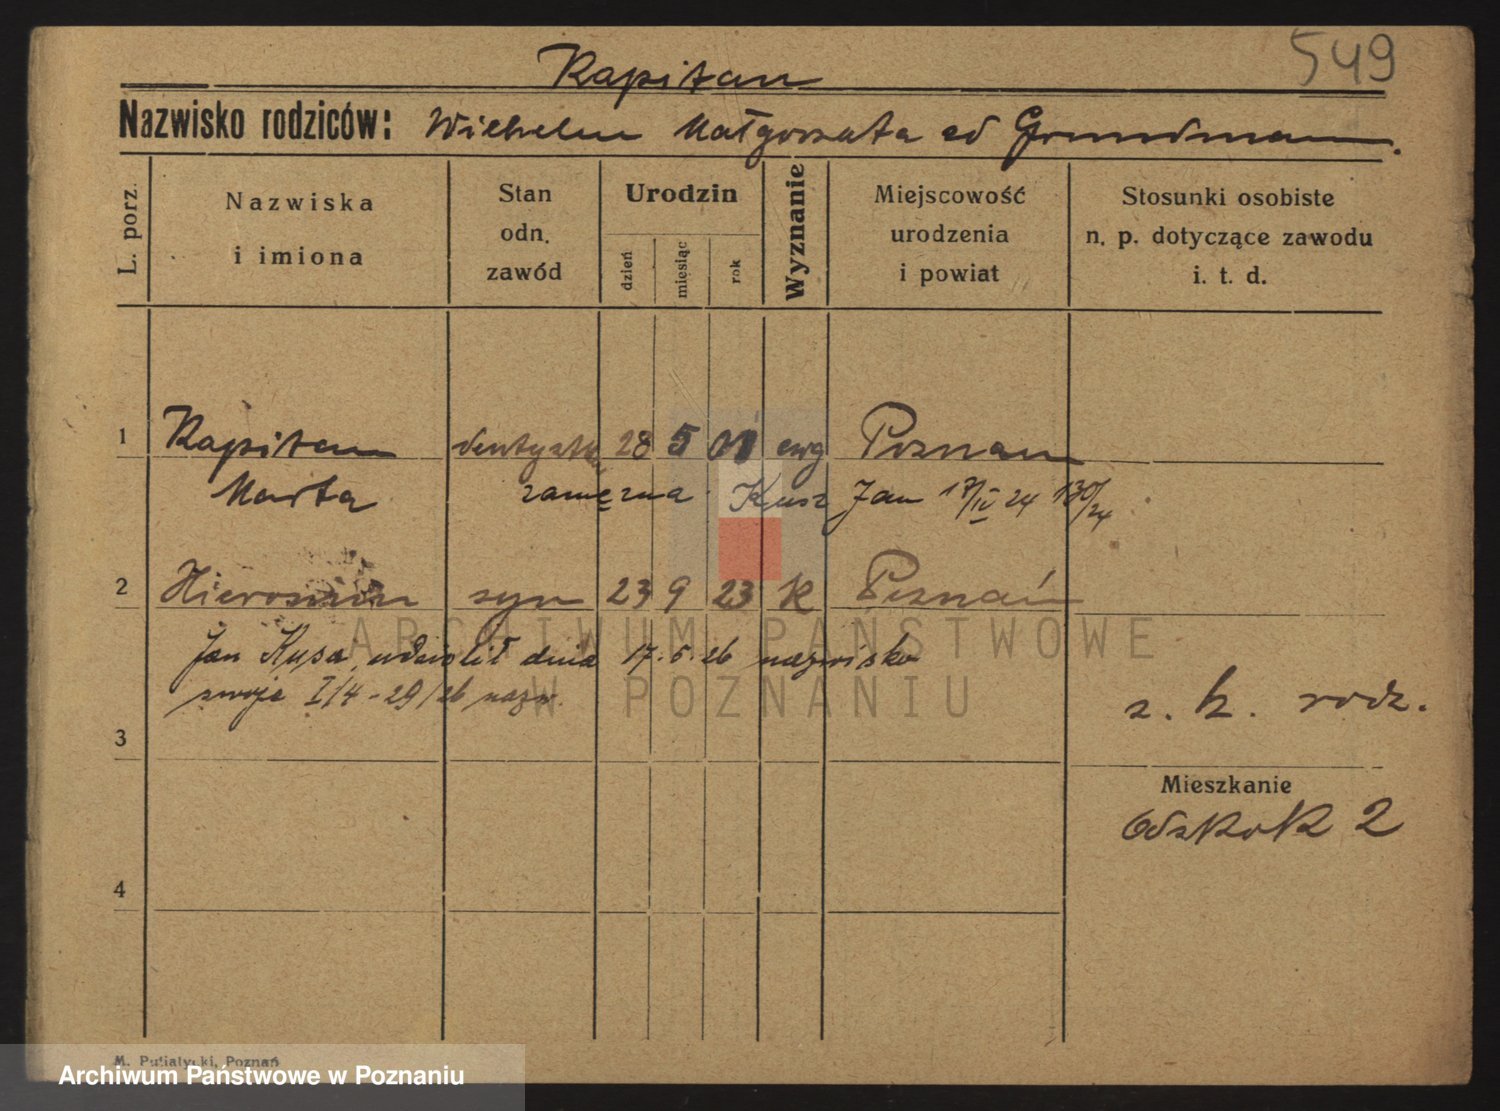 549
Kapitan
Nazwisko rodziców: Wilhelm Małgorzata ed Grundman.
L. porz.
Nazwiska
i imiona
Stan
odn.
zawód
Urodzin
dzień
miesiąc
rok
Wyznanie
Miejscowość
urodzenia
i powiat
Stosunki osobiste
n. p. dotyczące zawodu
i. t. d.
1 Kapitan 28 5 ewg Poznan
Marta zamężna Kusz Jan 17/IV 24 130/24
2 Hieronim syn 23 9 23 k Poznań
ARCHIWUM PAŃSTWOWE
Jan dnia 17.5.26 nazwisko
W POZNANIU
swoje I/4-29/26 nazw.
z. k. rodz.
3
Mieszkanie
2
4
M. Putiatycki, Poznań
Archiwum Państwowe w Poznaniu